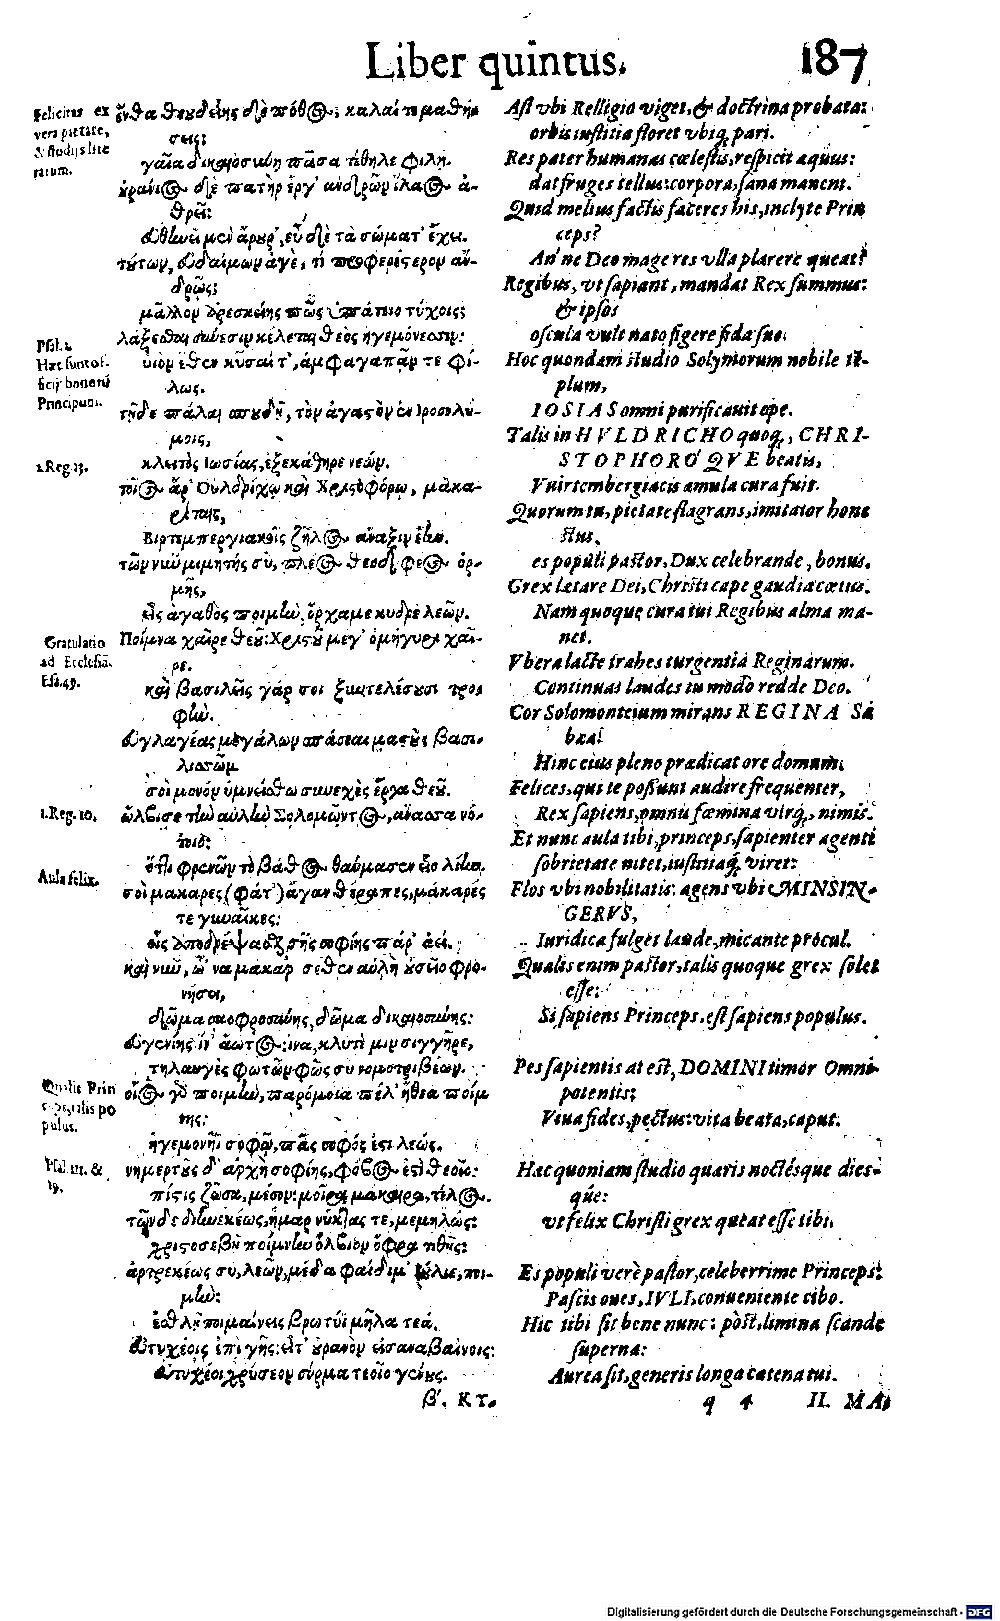 Liber quintus. 187
Felicitas ex
vera pietate,
& studijs lite
rarum.
Psal. 2.
Hæc sunt of-
ficij bonorũ
Principum.
2. Reg. 23.
Gratulatio
ad Ecclesiã.
Esa. 49.
1. Reg. 10.
Aula felix.
Qualis Prin
ceps, talis po
pulus.
Psal. 111. &
19.
ἔνθα θεουδείης δὲ πόθος, καλαί τε μαθή-
σεις:
γαῖα δικαιοσύνη πᾶσα τέθηλε φίλη.
οὐράνιος δὲ πατὴρ ἔργ' ἀνδρῶν ἵλαος ἀ-
θρεῖ:
εὐθενέει μὲν ἄρουρ', εὖ δὲ τὰ σώματ' ἔχει.
τούτων, εὐδαίμων ἄγε, τί προφερέστερον ἂν-
δρῷς;
μᾶλλον ἀρεσκείης πῶς ὑπάτοιο τύχοις;
λάζεσθαι σύνεσιν κέλεται θεὸς ἡγεμόνεσσιν:
υἱὸν ἑθεν κῦσαί τ', ἀμφαγαπᾶν τε φί-
λως.
τῇδε πάλαι σπουδῇ, τὸν ἀγαστὸν ἐν Ιροσολύ-
μοις,
κλειτὸς Ιωσίας, ἐξεκάθηρε νεών.
τοῖος ἄρ' Οὐλδρίχῳ καὶ Χριστοφόρῳ, μάκα-
ρίταις,
Βιρτεμπεργιακοῖς ζῆλος ἄναξιν ἔην.
τῶν νῦν μιμητής σύ, πλέος θεοῦδέος ὁρ-
μῆς,
εἷς ἀγαθὸς ποιμὴν, ὄρχαμε κυδρὲ λεῶν.
Ποίμνα χαῖρε θεοῦ: Χριστοῦ μεγ' ὁμήγυρι χαῖ-
ρε.
καὶ βασιλῆς γάρ σοι ξυντελέσουσι τρο-
φήν.
εὐγλαγέας μεγάλων σπάσεαι μαστοὺς βασι-
λισσῶν
σοὶ μονὸν ὑμνείσθω συνεχὲς ἔργα θεοῦ.
ὤλβισε τὴν αὐλὴν Σολομῶντος, ἄνασσα νό-
τοιο:
ὅττι φρενῶν τὸ βάθος θαύμασεν
σοὶ μάκαρες (φάτ') ἄγαν θέραπες, μάκαρές
τε γυναῖκες:
οἷς σῆς σοφίης πάρ' ἀεί.
καὶ νῦν, ὦ 'να μάκαρ σέθεν αὐλὴ οὑσίο φρο-
νήσει,
δῶμα σαοφροσύνης, δῶμα δικαιοσύνης:
εὐγενίης ἵν' ἄωτος: ἵνα, κλυτὲ μινσιγγῆρε,
τηλαυγὲς φωτῶν φῶς συ νομοτριβέων.
οἷος γὰρ ποιμὴν, παρόμοια πέλ' ἤθεα ποίμ
νης:
ἡγεμονῆϊ σοφῷ, πᾶς σοφός ἐστι λεώς.
νημερτοῦς δ' ἀρχὴ σοφίης, φόβος ἐστὶ θεοῖο:
πίστις ζῶσα, μέσον: μοῖρα μάκαιρα, τέλος.
τῶνδε διηνεκέως, ἦμαρ νύκτας τε, μεμηλώς:
χριστοσεβῆ ποίμνην ὄλβιον ὄφρα τιθῇς:
ἀτρεκέως συ, λεῶν, μέγα φαίδιμ' Ιούλιε, ποι-
μὴν:
ἐσθλῇ ποιμαίνεις βρωτύϊ μῆλα τεά.
εὐτυχέοις ἐπὶ γῆς: εἶτ' οὐρανὸν εἰσαναβαίνοις:
εὐτυχέοι χρύσεον σύρμα τεοῖο γένους.
β'. ΚΤ.
Ast vbi Relligio viget, & doctrina probata:
orbis iustitia floret vbiq; pari.
Res pater humanas cœlestis, respicit æquus:
dat fruges tellus: corpora, sana manent.
Quid melius factis faceres his, inclyte Prin
ceps?
An'ne Deo mage res vlla placere queat?
Regibus, vt sapiant, mandat Rex summus:
& ipsos
oscula vult nato figere fida suo.
Hoc quondam studio Solymorum nobile tẽ-
plum,
IOSIAS omni purificauit ope.
Talis in HVLDRICHO quoq;, CHRI-
STOPHORO' QVE beatis,
Vuirtembergiacis æmula cura fuit.
Quorum tu, pietate flagrans, imitator hone
stus,
es populi pastor, Dux celebrande, bonus.
Grex lætare Dei, Christi cape gaudia cœtus.
Nam quoque cura tui Regibus alma ma-
net.
Vbera lacte trahes turgentia Reginarum.
Continuas laudes tu modò redde Deo.
Cor Solomonteium mirans REGINA Sa
bæa!
Hinc eius pleno prædicat ore domum.
Felices, qui te possunt audire frequenter,
Rex sapiens, omnes fœmina virq;, nimis.
Et nunc aula tibi, princeps, sapienter agenti
sobrietate nitet, iustitiaq; viret:
Flos vbi nobilitatis: agens vbi MINSIN-
GERVS,
Iuridica fulget laude, micante procul.
Qualis enim pastor, talis quoque grex solet
esse:
Si sapiens Princeps, est sapiens populus.
Pes sapientis at est, DOMINI timor Omni-
potentis:
Viua fides, pectus: vita beata, caput.
Hæc quoniam studio quæris noctésque dies-
qúe:
vt felix Christi grex queat esse tibi,
Es populi verè pastor, celeberrime Princeps:
Pascis oues, IVLI, conueniente cibo.
Hic tibi sit bene nunc: pòst, limina scande
superna:
Aurea sit, generis longa catena tui.
q 4 II. MA
Digitalisierung gefördert durch die Deutsche Forschungsgemeinschaft - DFG